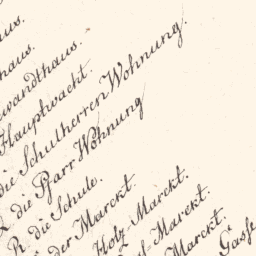 haus.
wandthaus.
Hauptwacht.
die Schulherren Wohnung.
die Pfarr Wohnung
R. die Schule.
der Marckt.
Holz-Marckt.
Marckt.
Marckt.
Gasse